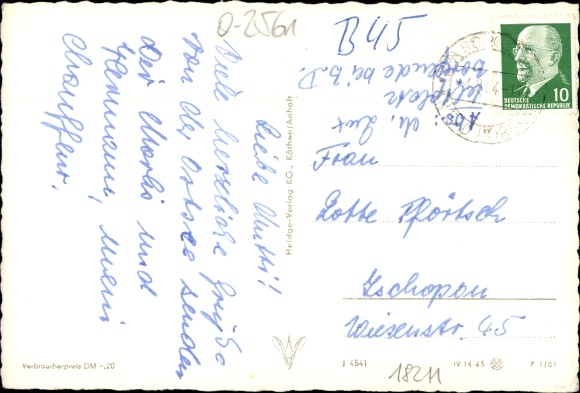 O-2561
B45
Liebe Mutti!
Viele herzliche Grüße
von der Ostsee senden
Dir Marko und
Hermann, mein
Chauffeur.
DEUTSCHE
DEMOKRATISCHE REPUBLIK
10
Abs.: M. Lux
bei B.D.
Frau
Lotte Pförtsch
Zschopau
Wiesenstr. 45
Heldge-Verlag KG., Köthen/Anhalt
Verbraucherpreis DM -,20
J 4541
IV-14-45
P 1/61
18211